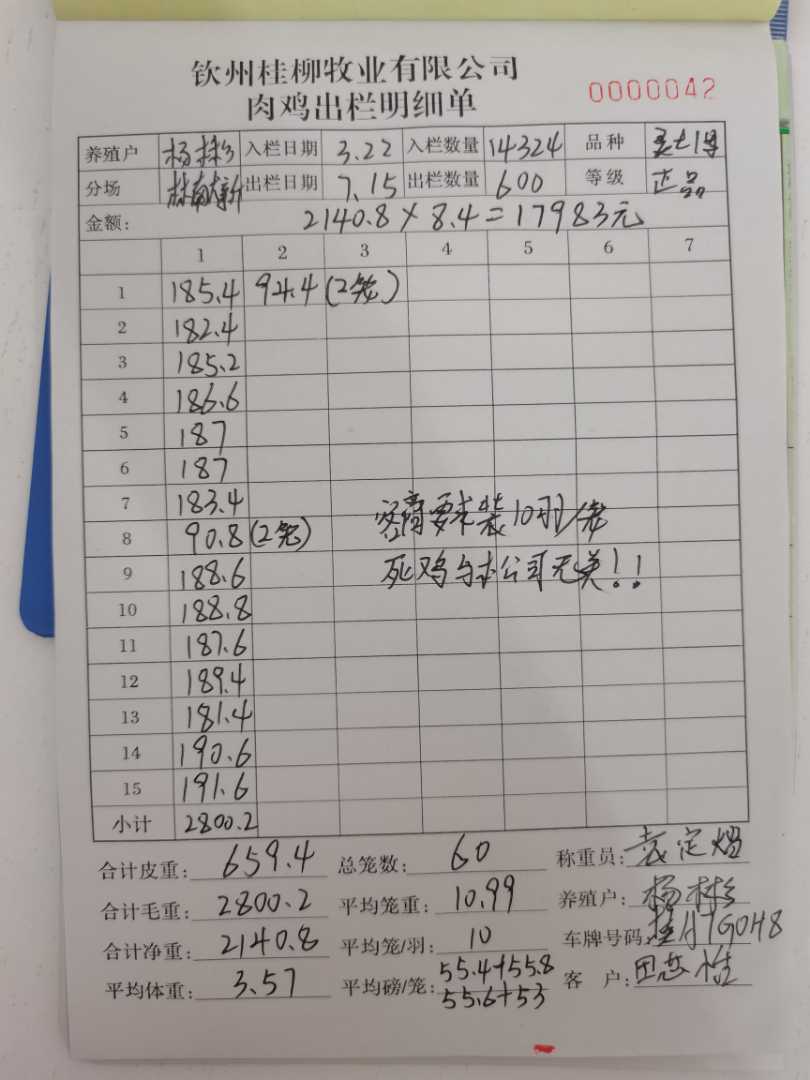 钦州桂柳牧业有限公司
肉鸡出栏明细单
0000042
养殖户 杨彬 入栏日期 3.22 入栏数量 14324 品种
分场 出栏日期 7.15 出栏数量 600 等级 正品
金额: 2140.8 × 8.4 = 17983元
1 2 3 4 5 6 7
1 185.4 94.4 (2笼)
2 182.4
3 185.2
4 186.6
5 187
6 187
7 183.4
8 90.8 (2笼)
客商要求装10羽/笼
9 188.6
死鸡与本公司无关!!
10 188.8
11 187.6
12 189.4
13 181.4
14 190.6
15 191.6
小计 2800.2
合计皮重: 659.4 总笼数: 60 称重员: 袁定熠
合计毛重: 2800.2 平均笼重: 10.99 养殖户: 杨彬
合计净重: 2140.8 平均笼/羽: 10 车牌号码:
平均体重: 3.57 平均磅/笼: 55.4+55.8 客 户:
55.6+53